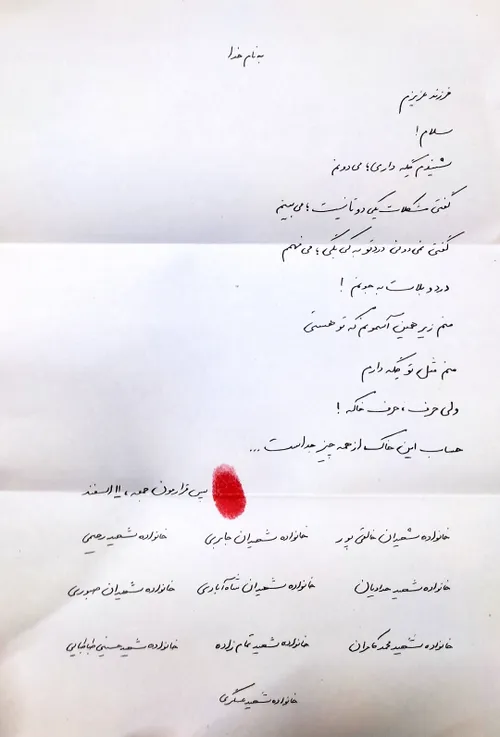 به نام خدا
فرزند عزیزم
سلام!
شنیدم گِله داری؛ می‌دونم
گفتی مشکلات یکی دو تا نیست؛ می‌بینم
گفتی نمی‌دونی دردتو به کی بگی؛ می‌فهمم
درد و بلات به جونم!
منم زیر همین آسمونم که تو هستی
منم مثل تو گِله دارم
ولی حرف، حرف خاکه!
حساب این خاک از همه چیز جداست ...
پس قرارمون جمعه، ۱۱ اسفند
خانواده شهیدان خالقی پور خانواده شهیدان جابری خانواده شهید رحیمی
خانواده شهید حدادیان خانواده شهیدان شاه آبادی خانواده شهیدان صبوری
خانواده شهید محمد کامران خانواده شهید تمام زاده خانواده شهید حسینی طباطبایی
خانواده شهید عسگری